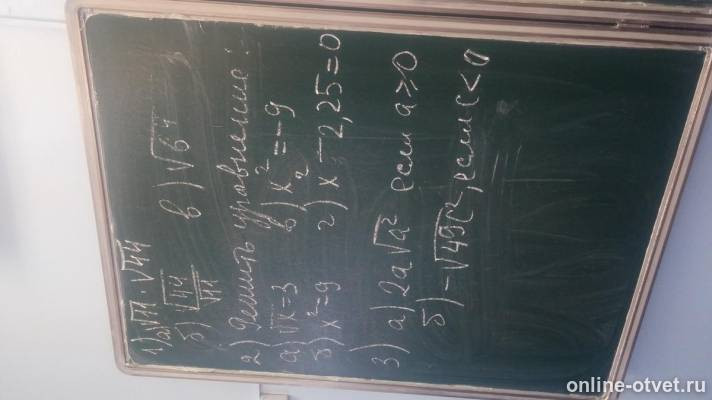 1) а) √11 · √44
б) √44/√11 в) √6⁴
2) Решить уравнение:
а) √x = 3 в) x² = -9
б) x² = 9 г) x² - 2,25 = 0
3) а) 2a√a² если a ≥ 0
б) -√49c², если c < 0
online-otvet.ru